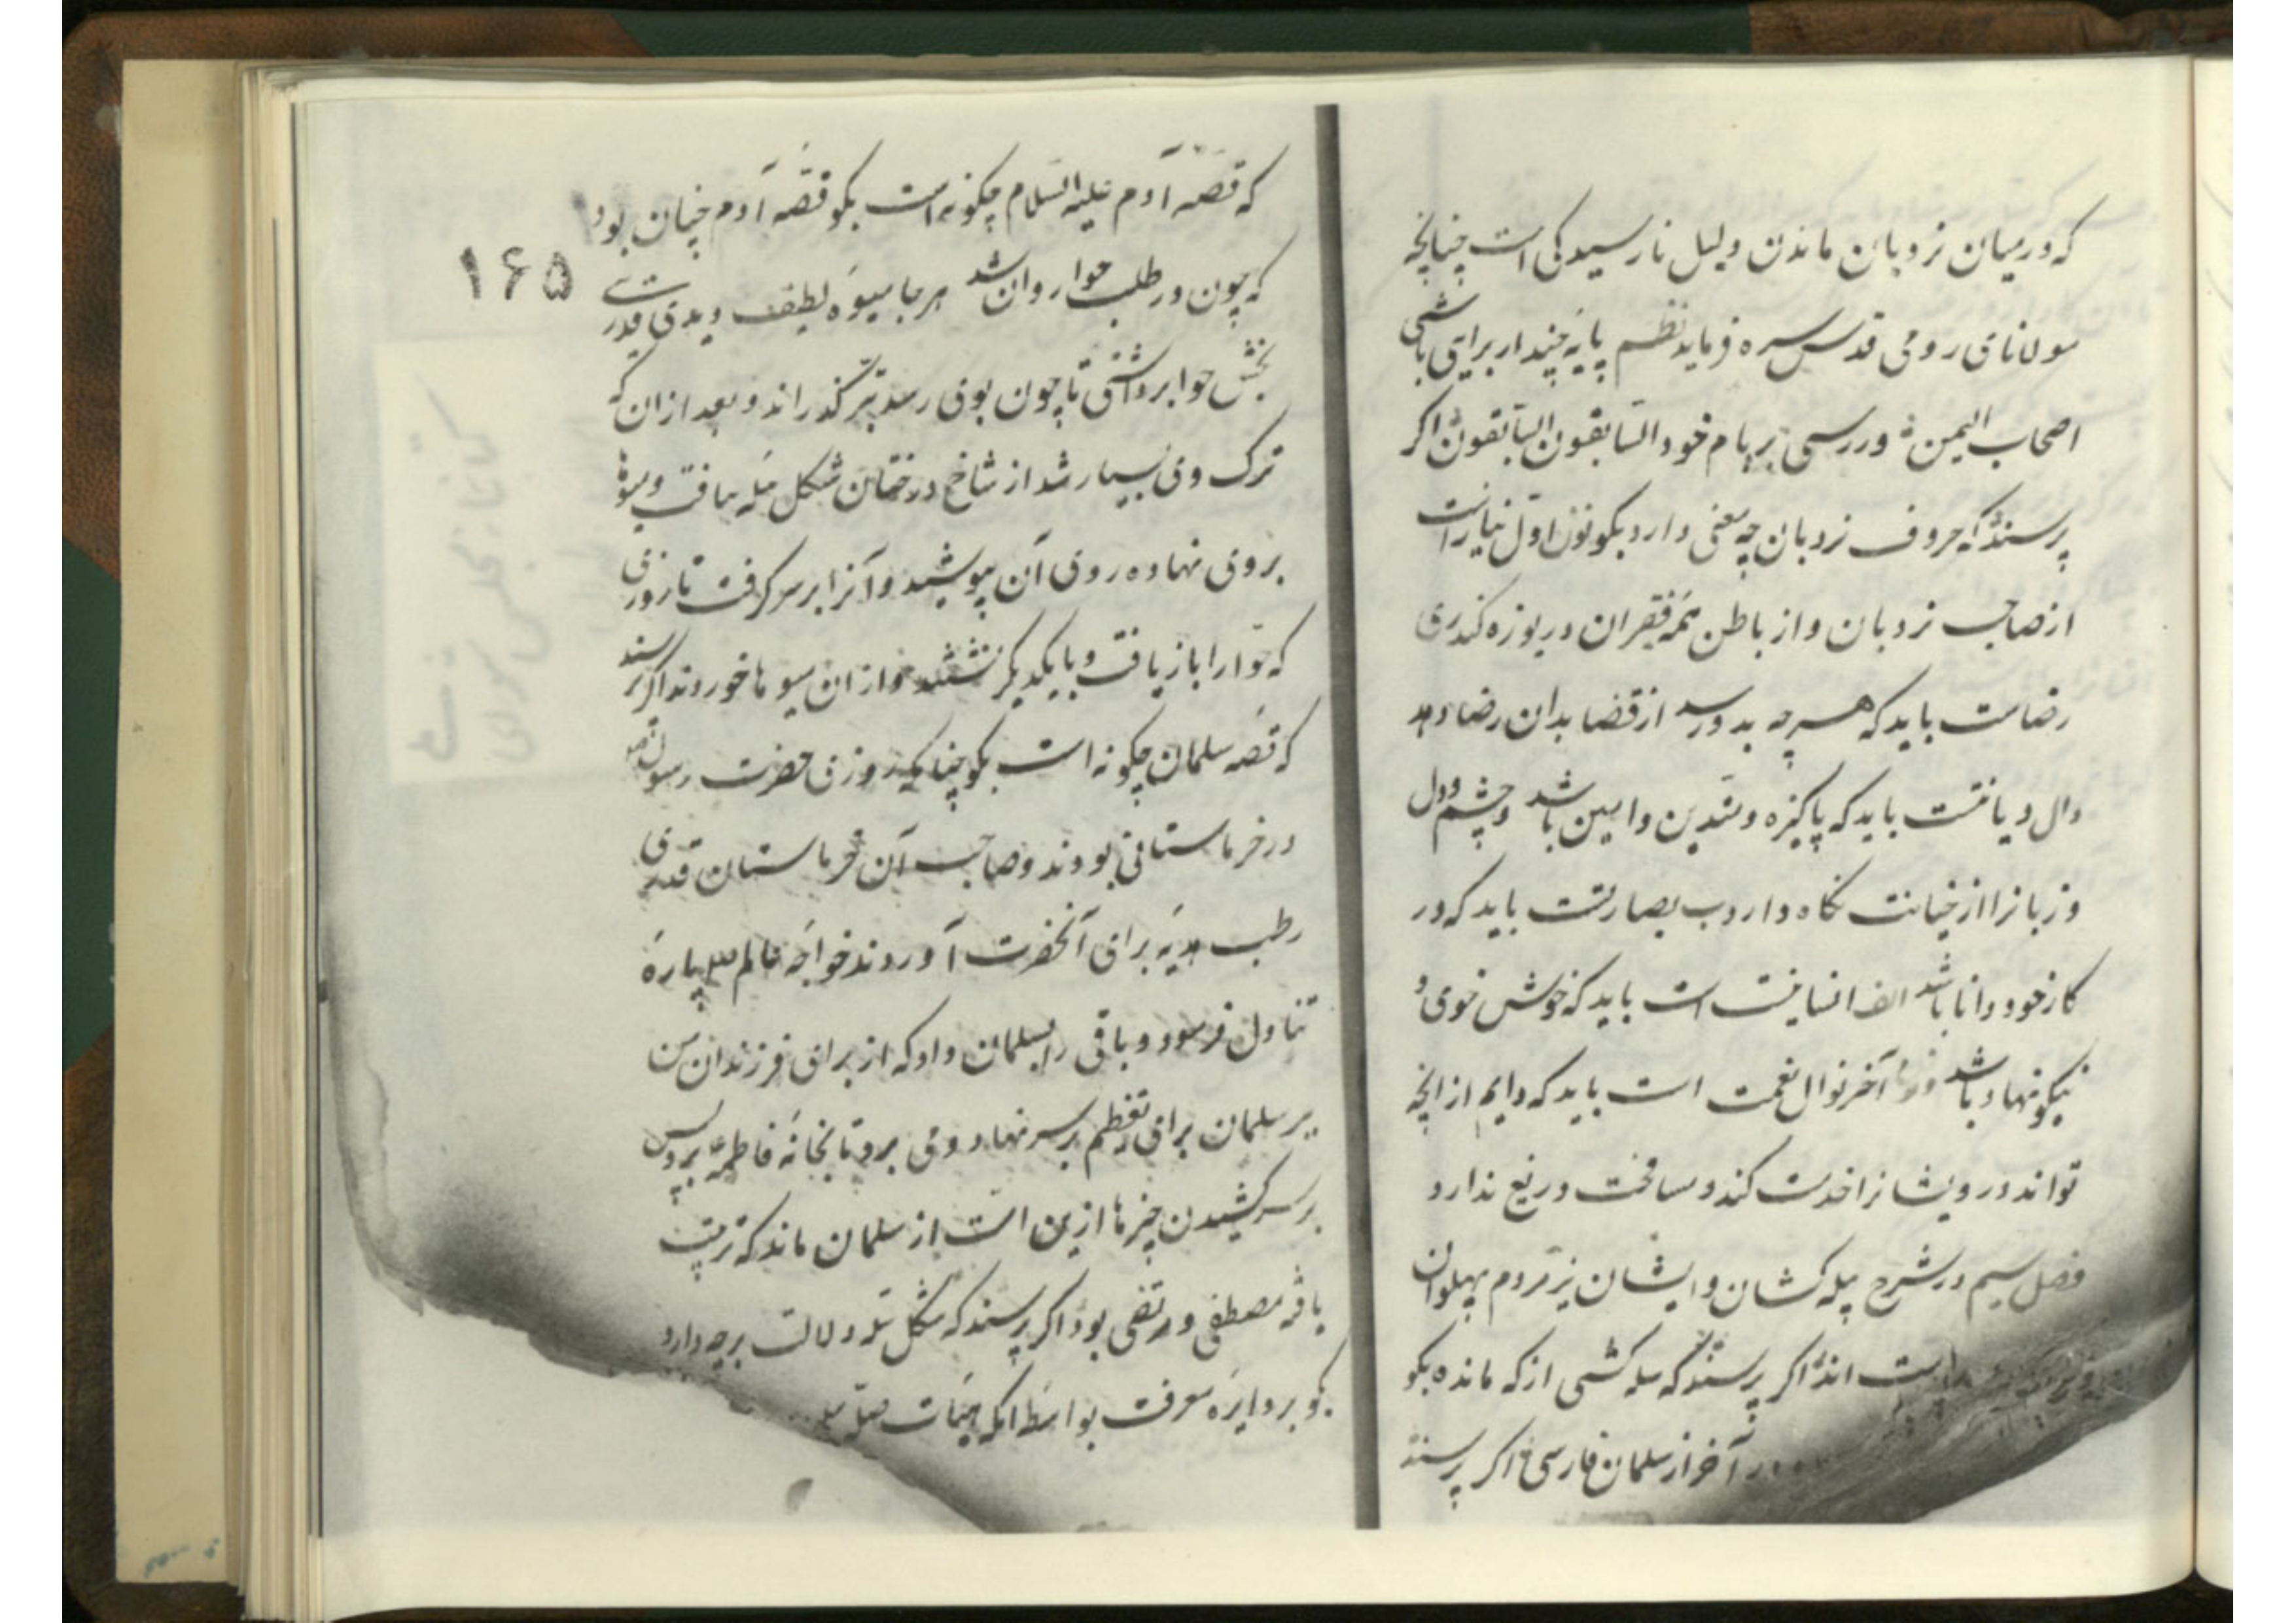 که در میان نردبان ماندن دلیل نارسیدگی است چنانچه
مولانای رومی قدس سره فرماید نظم پایه چند ار برآیی باشی
اصحاب الیمین ور رسی بر بام خود السابقون السابقون اکر
پرسند که حروف نردبان چه معنی دارد بکو نون اول نیاز است
از صاحب نردبان و از باطن همه فقیران دریوزه کند ری
رضاست باید که هر چه بدو رسد از قضا بدان رضا دهد
دال دیانتست باید که پاکیزه و متدین و امین باشد و چشم و دل
و زبانرا از خیانت نکاه دارد ب بصارتست باید که در
کار خود دانا باشد الف انسانیت است باید که خوش خوی و
نیکو نهاد باشد نون آخر نوال نعمت است باید که دایم از انچه
تواند درویشانرا خدمت کند و مسامحت دریغ ندارد
فصل سیم در شرح سله کشان و ایشان نیز مردم پهلوان
است اند اکر پرسند که سله کشی از که مانده بکو
در آخر از سلمان فارسی اکر پرسند
که قصه آدم علیه السلام چکونه است بکو قصه آدم چنان بود
۱۶۵
که چون در طلب حوا روان شد هر جا میوه لطیف دیدی قدری
بخش حوا برداشتی تا چون بوی رسد بتر کذراند و بعد از آن که
ترک وی بسیار شد از شاخ درختان شکل سله بیافت و میوها
بروی نهاده روی آن بپوشید و آنرا بر سر کرفت تا روزی
که حوا را باز یافت و با یکدیکر نشستند و از آن میوها خوردند اکر پرسند
که قصه سلمان چکونه است بکو چنانکه روزی حضرت رسول
در خرماستانی بودند و صاحب آن خرماستان قدری
رطب هدیه برای آنحضرت آوردند خواجه عالم سه پاره
تناول فرمود و باقی را بسلمان داد که از برای فرزندان من
ببر سلمان برای تعظیم بر سر نهاد و می برد تا بخانه فاطمه برد پس
بر سر کشیدن چیزها ازین است از سلمان ماند که تربیت
یافه مصطفی و مرتضی بود اکر پرسند که شکل سله دلالت بر چه دارد
بکو بر دایره معرفت بواسطه انکه هیات